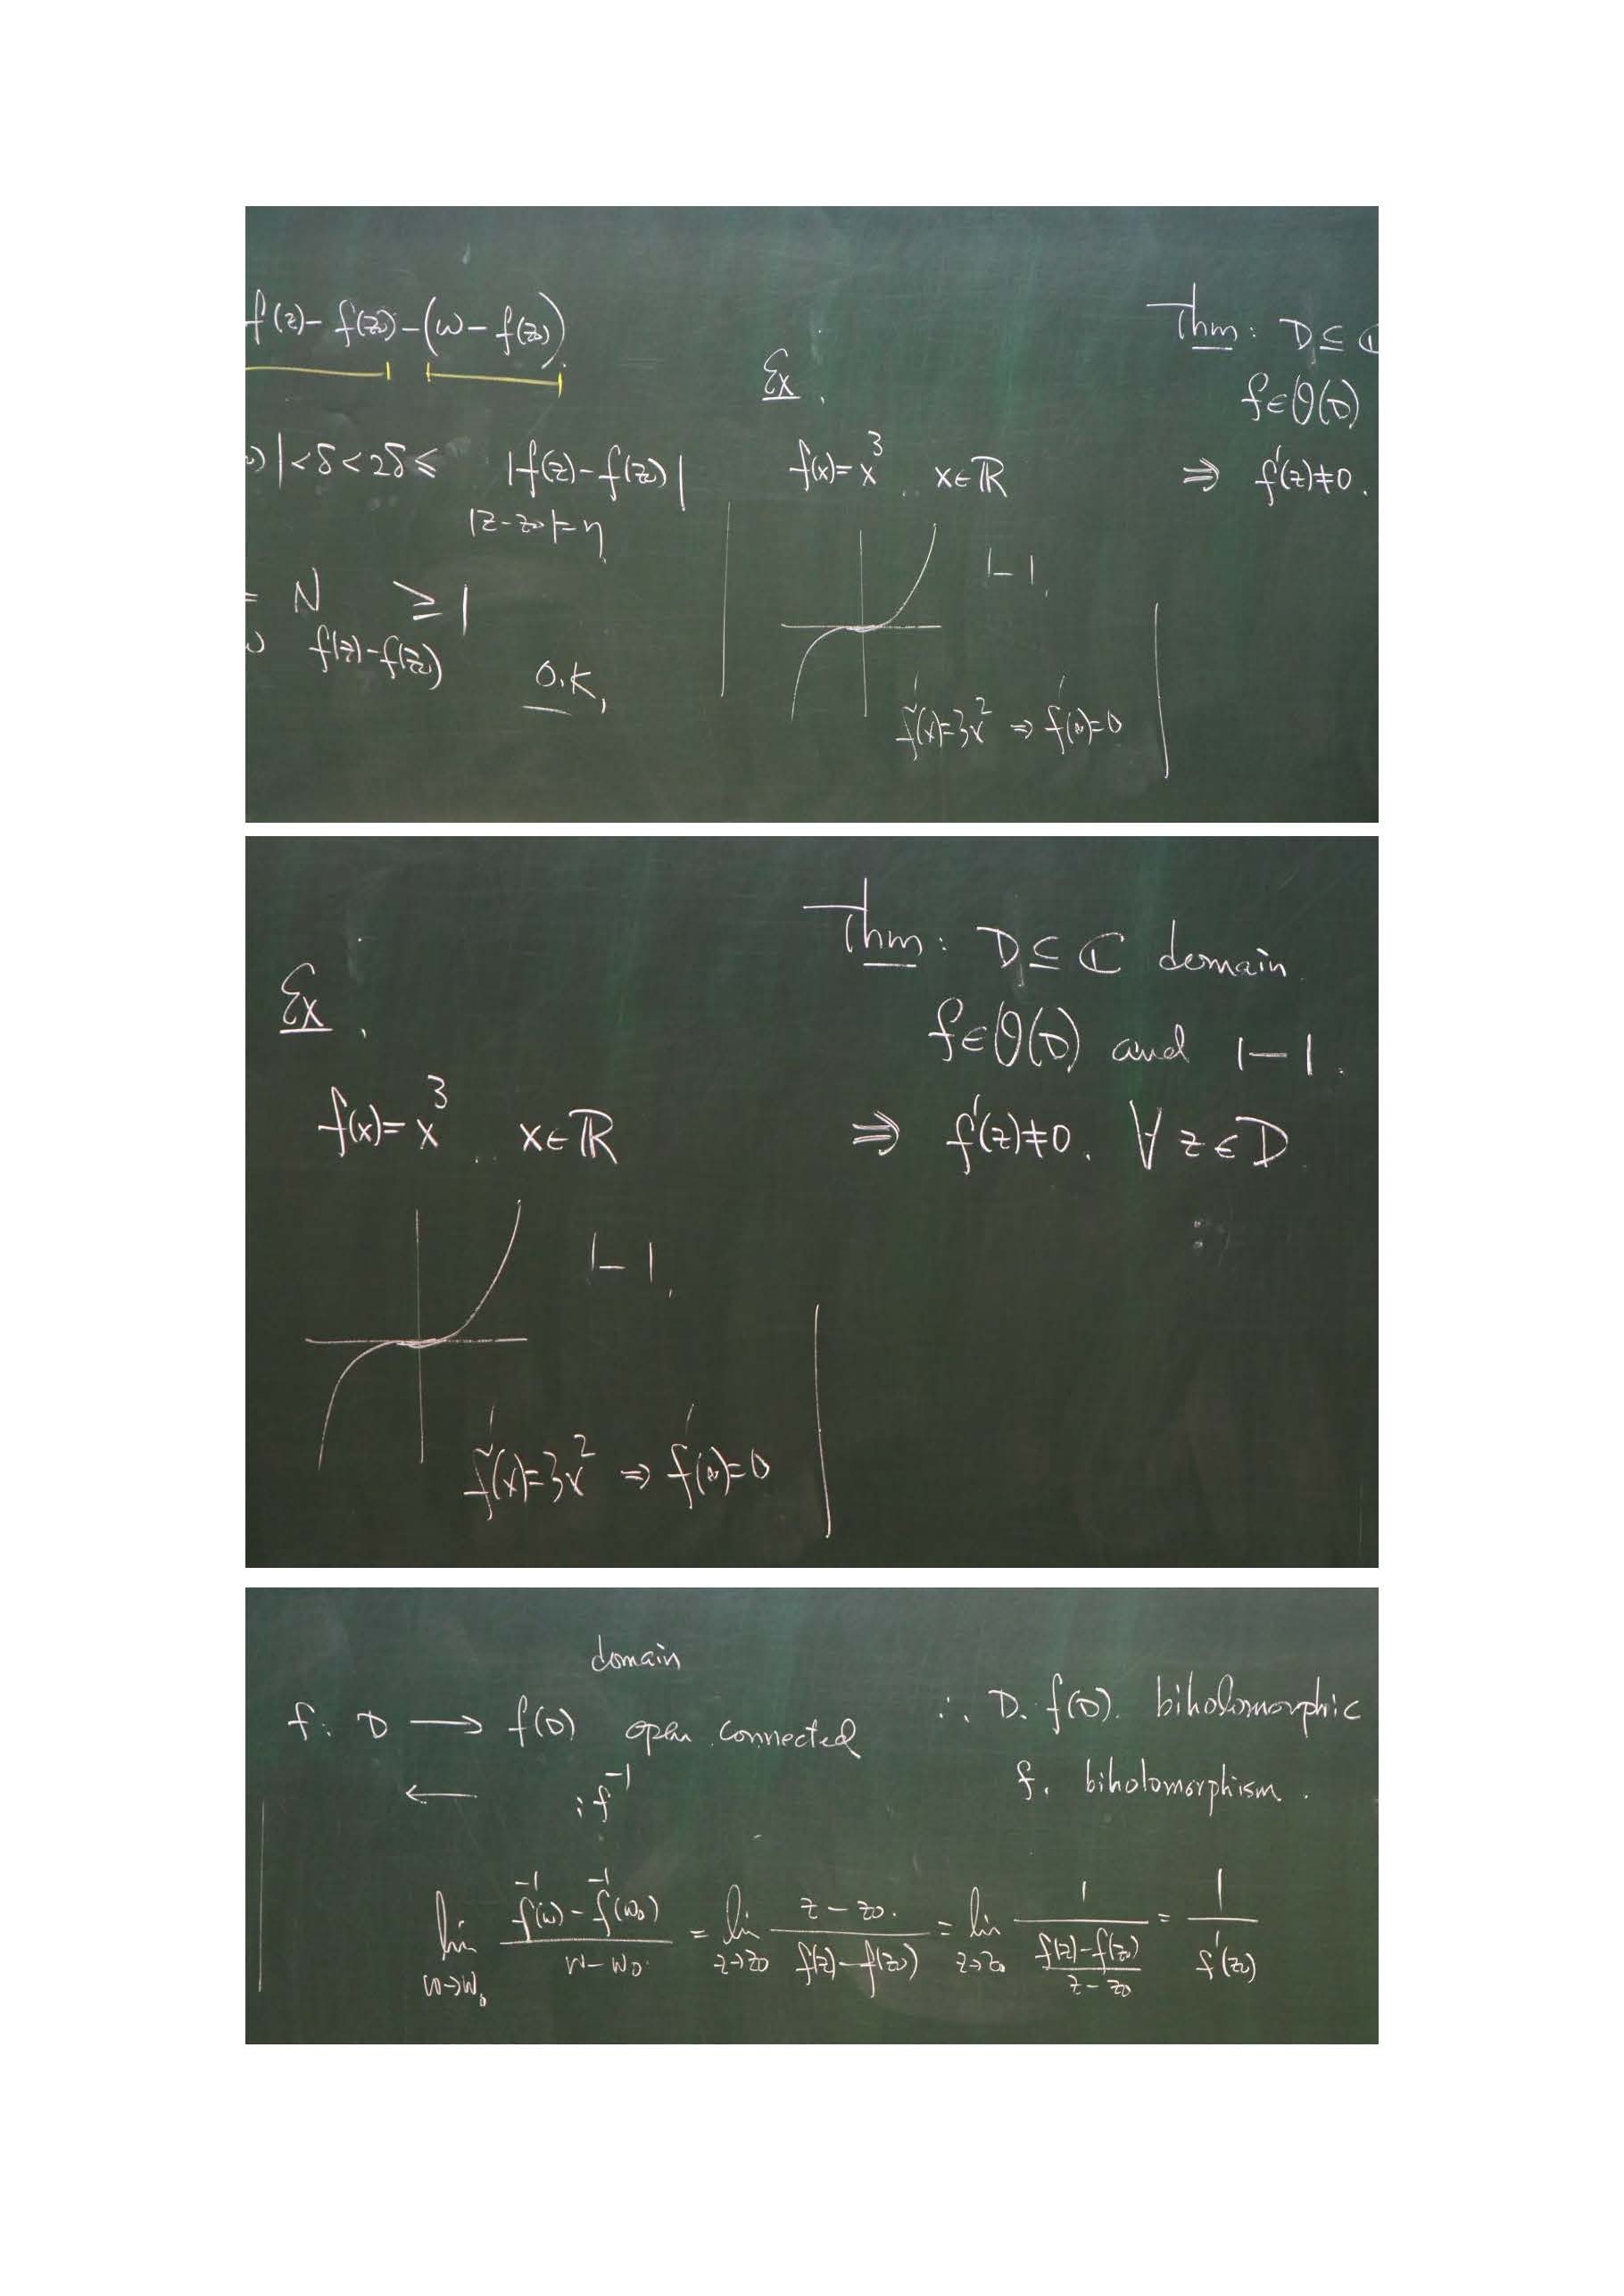 f(z)-f(z₀)-(w-f(z₀))
)|<δ<2δ≤ |f(z)-f(z₀)|
|z-z₀|=η
= N ≥1
f(z)-f(z₀)
O.K,
Ex.
f(x)=x³ x∈ℝ
1-1,
f'(x)=3x² ⇒ f'(0)=0
Thm: D⊆ℂ
f∈O(D)
⇒ f'(z)≠0.
Ex.
f(x)=x³ x∈ℝ
1-1,
f'(x)=3x² ⇒ f'(0)=0
Thm: D⊆ℂ domain.
f∈O(D) and 1-1.
⇒ f'(z)≠0. ∀ z∈D
domain
f: D → f(D) open connected
← : f⁻¹
∴ D. f(D). biholomorphic
f. biholomorphism.
lim_{w→w₀} (f⁻¹(w)-f⁻¹(w₀))/(w-w₀) = lim_{z→z₀} (z-z₀)/(f(z)-f(z₀)) = lim_{z→z₀} 1/((f(z)-f(z₀))/(z-z₀)) = 1/f'(z₀)